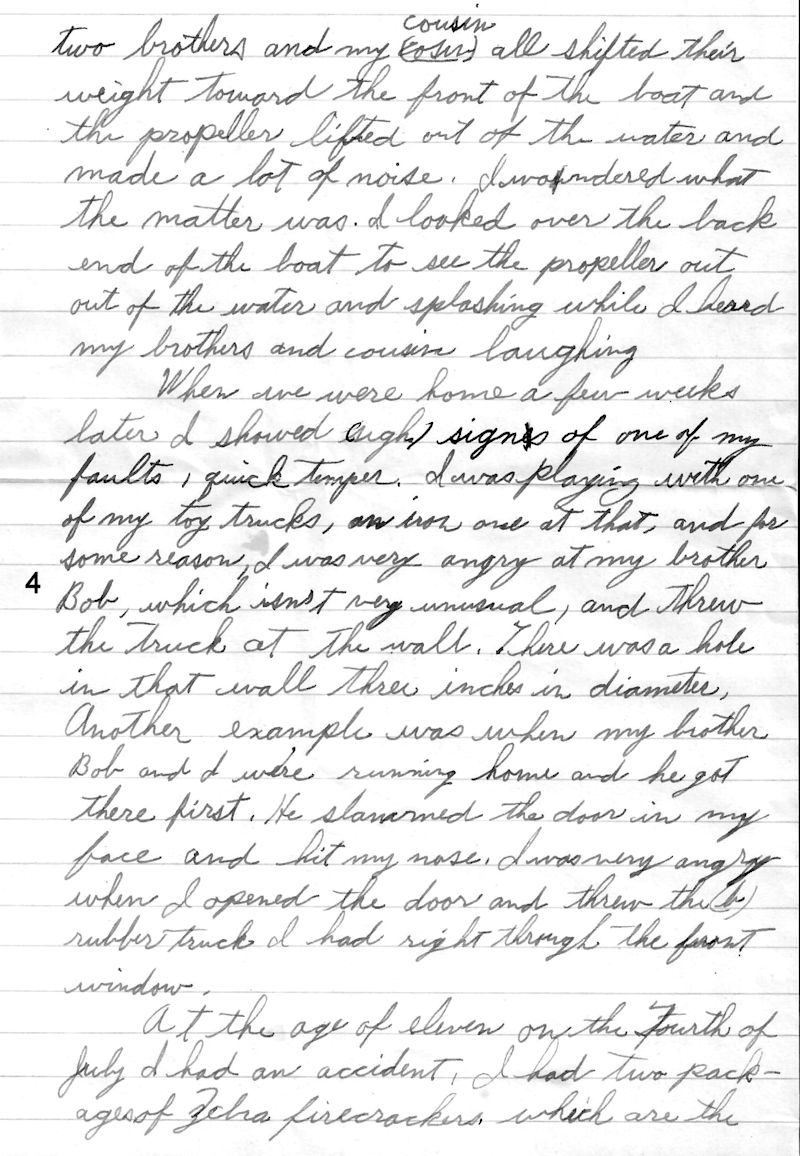 cousin
two brothers and my (cosin) all shifted their
weight toward the front of the boat and
the propeller lifted out of the water and
made a lot of noise. I wondered what
the matter was. I looked over the back
end of the boat to see the propeller out
out of the water and splashing while I heard
my brothers and cousin laughing
When we were home a few weeks
later I showed (sigh) signs of one of my
faults, quick temper. I was playing with one
of my toy trucks, an iron one at that, and for
some reason, I was very angry at my brother
4
Bob, which isn't very unusual, and threw
the truck at the wall. There was a hole
in that wall three inches in diameter,
Another example was when my brother
Bob and I were running home and he got
there first. He slammed the door in my
face and hit my nose. I was very angry
when I opened the door and threw the (b)
rubber truck I had right through the front
window.
At the age of eleven on the Fourth of
July I had an accident, I had two pack-
ages of Zebra firecrackers, which are the